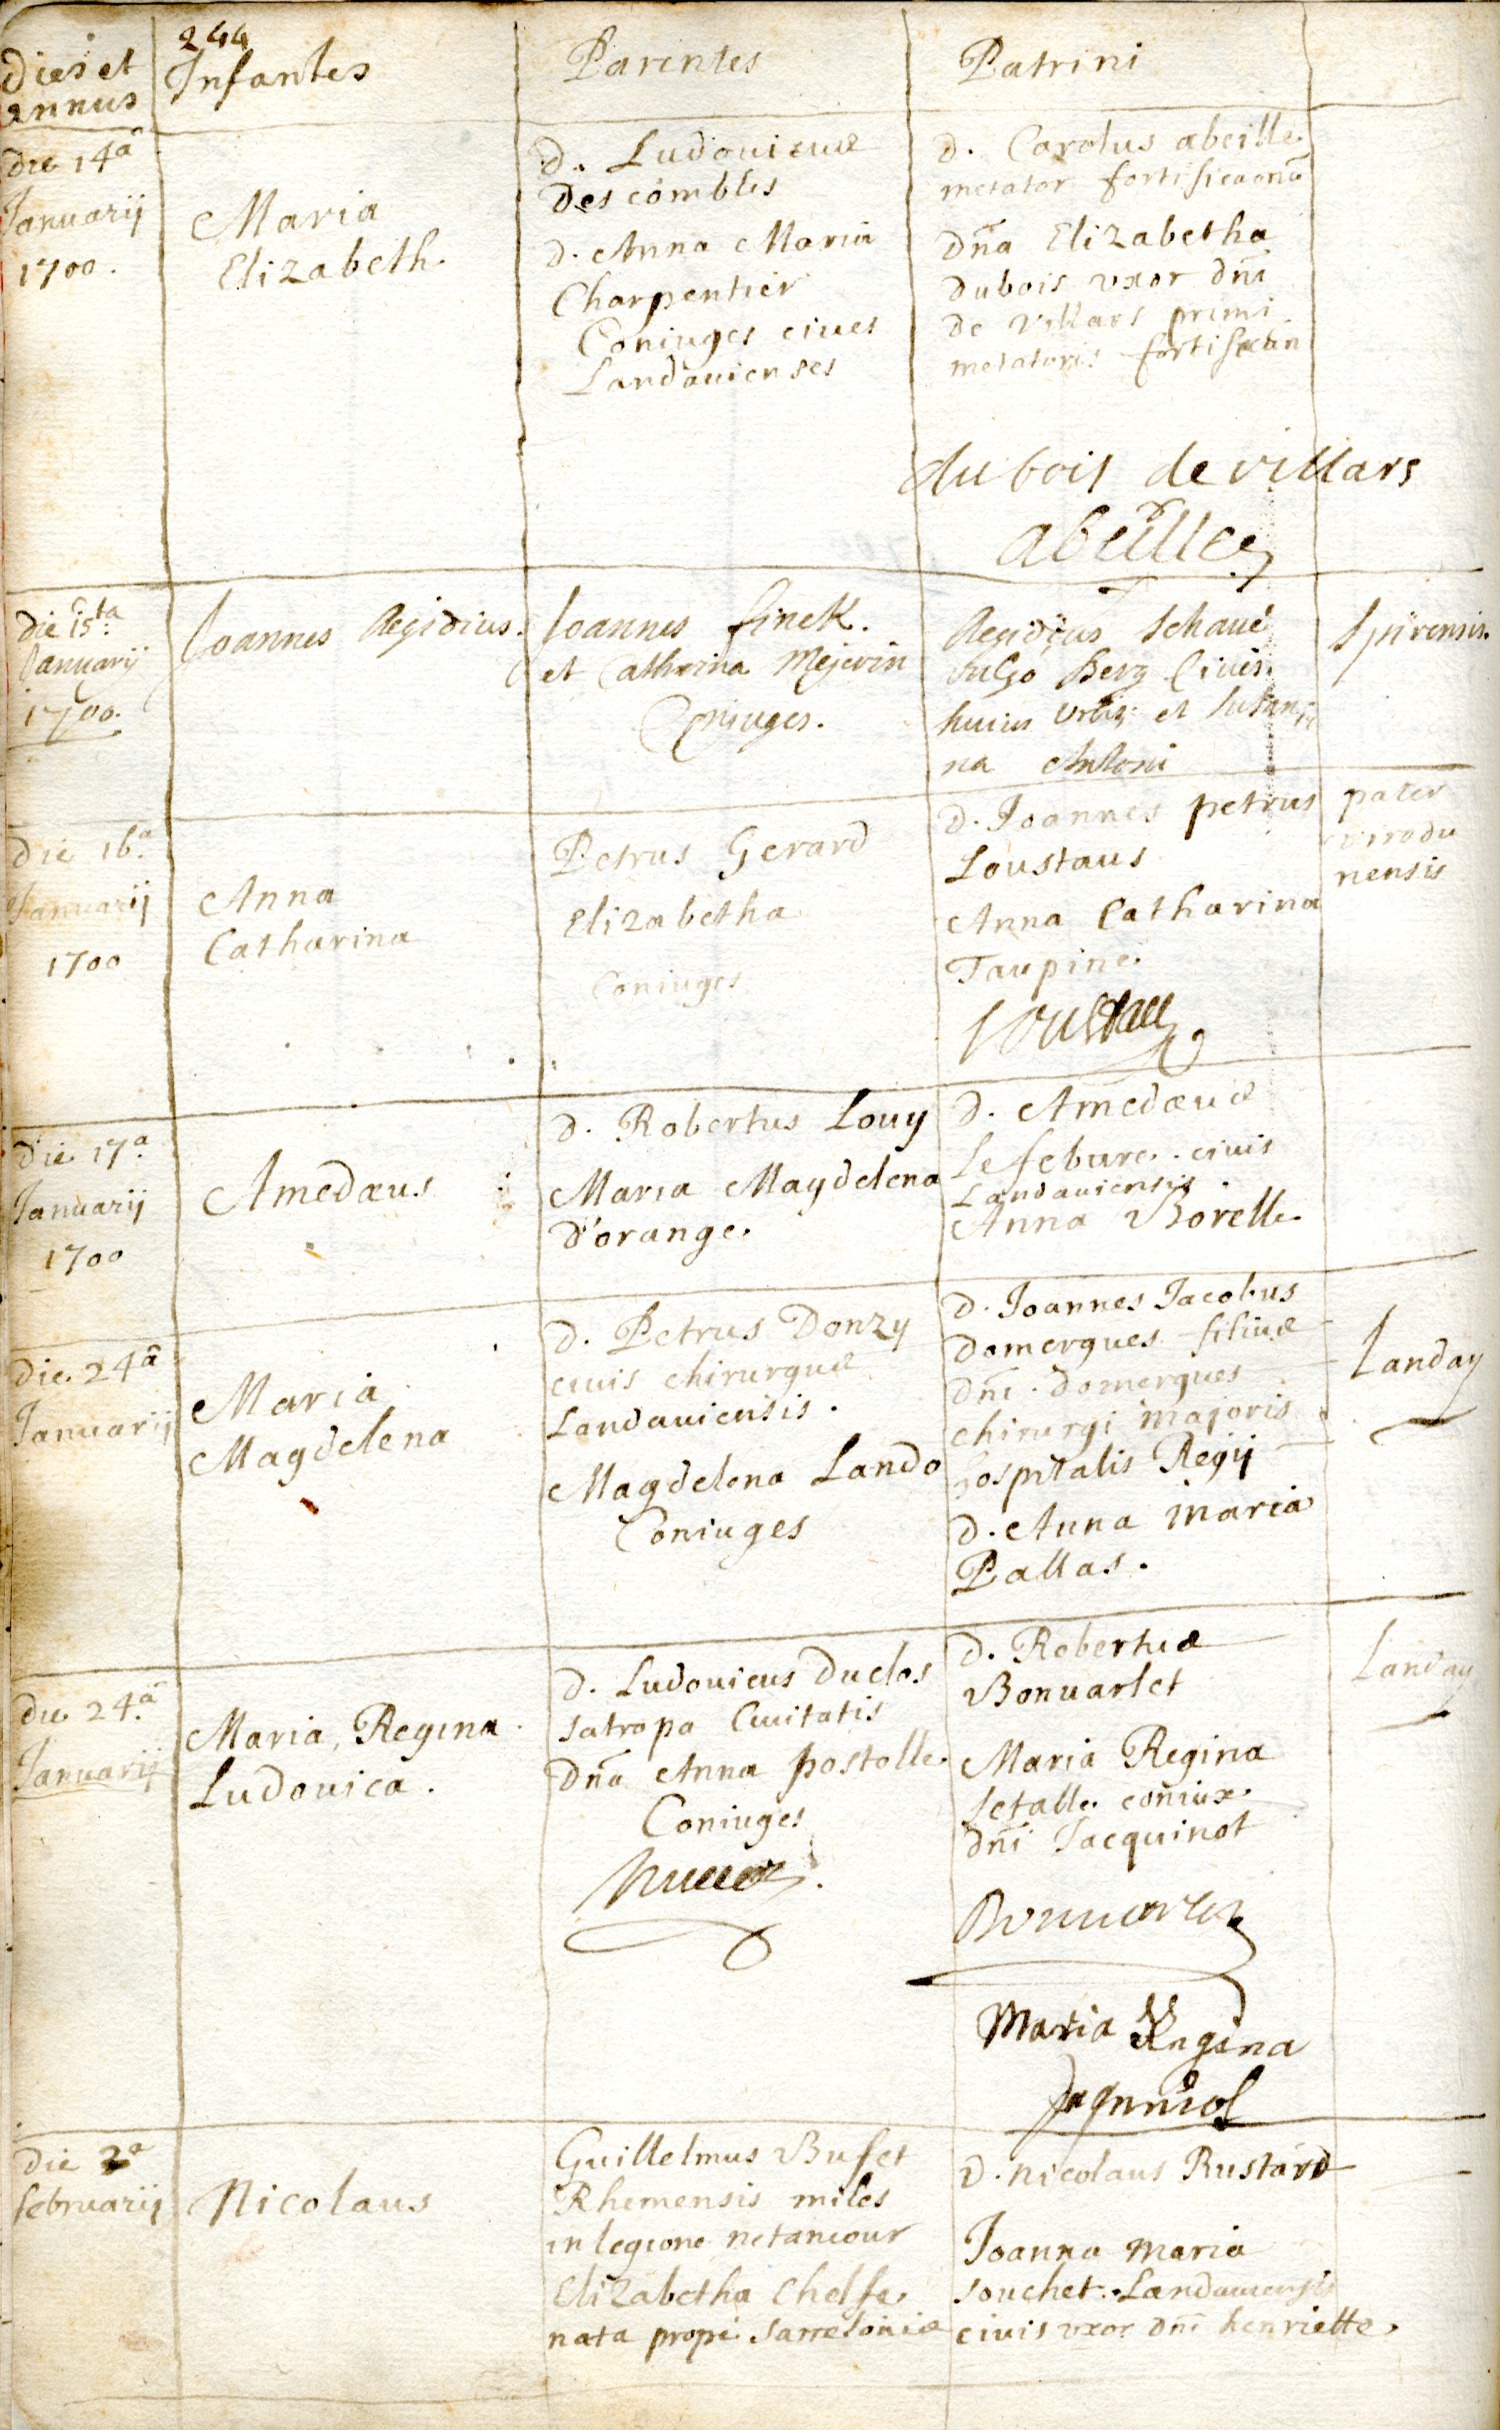 244
Dies et
annus
Infantes
Parentes
Patrini
die 14a
Januarij
1700.
Maria
Elizabeth.
d. Ludovicus
Des combles
d. Anna Maria
Charpentier
Coniuges ciues
Landauienses
d. Carolus abeille
metator fortificaonū
Dña Elizabetha
dubois uxor dñi
de Villars primi
metatoris
du bois de villars
abeille
die 15ta
Januarij
1700.
Joannes Aegidius.
Joannes finck.
et Catharina Mejerin
Coniuges.
Aegidius Schaue
vulgo Berg Ciuis
huius urbis et Susan
na Antoni
Spirensis.
die 16a
Januarij
1700
Anna
Catharina
Petrus Gerard
Elizabetha
Coniuges
d. Joannes petrus
Loustaus
Anna Catharina
Taupine
Loustau
pater
virodu
nensis
die 17a
Januarij
1700
Amedæus
d. Robertus Louy
Maria Magdelena
d'orange.
d. Amedæus
Lefebure. ciuis
Landauiensis.
Anna Borelle
die 24a
Januarij
Maria
Magdelena
d. Petrus Donzy
ciuis chirurgus
Landauiensis.
Magdelena Lando
Coniuges
d. Joannes Jacobus
Domergues filius
dñi. domergues
chirurgi majoris
hospitalis Regij
d. Anna maria
Pallas.
Landau
die 24a
Januarij
Maria, Regina
Ludouica.
d. Ludouicus Duclos
satropa Ciuitatis
Dña Anna postolle
Coniuges
d. Robertus
Bonuarlet
Maria Regina
setalle coñiux
dñi Jacquinot
Bonuarlet
Maria Regina
Landau
die 2a
februarij
Nicolaus
Guillelmus Bufet
Rhemensis miles
in legione netancour
Elizabetha Chelfe
nata prope
d. nicolaus Rustard
Joanna maria
souchet. Landauiensis
ciuis uxor dñi henriette.